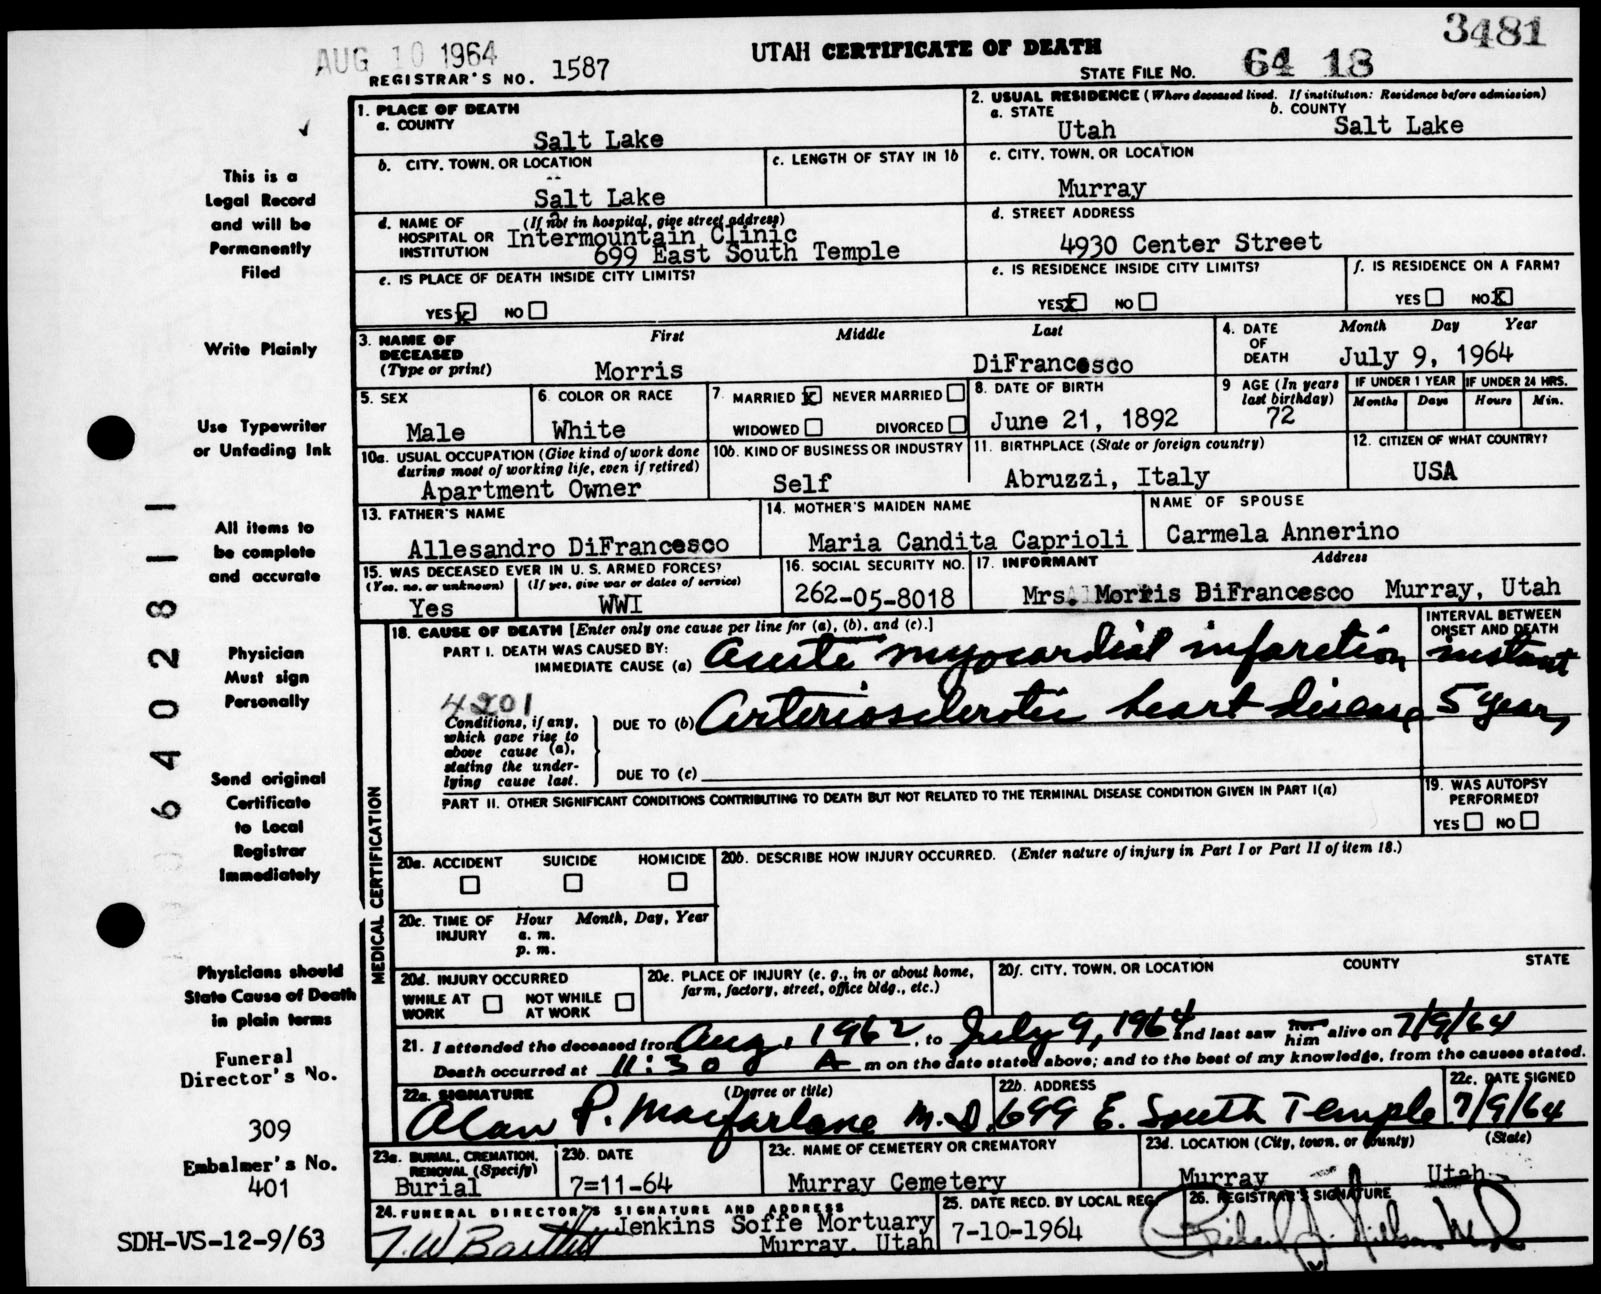 AUG 10 1964
UTAH CERTIFICATE OF DEATH
3481
REGISTRAR'S NO. 1587
STATE FILE NO. 64 18
1. PLACE OF DEATH
a. COUNTY
Salt Lake
2. USUAL RESIDENCE (Where deceased lived. If institution: Residence before admission)
a. STATE
Utah
b. COUNTY
Salt Lake
b. CITY, TOWN, OR LOCATION
Salt Lake
c. LENGTH OF STAY IN 1b
c. CITY, TOWN, OR LOCATION
Murray
d. NAME OF HOSPITAL OR INSTITUTION
(If not in hospital, give street address)
Intermountain Clinic
699 East South Temple
d. STREET ADDRESS
4930 Center Street
e. IS PLACE OF DEATH INSIDE CITY LIMITS?
YES x NO
e. IS RESIDENCE INSIDE CITY LIMITS?
YES x NO
f. IS RESIDENCE ON A FARM?
YES NO x
3. NAME OF DECEASED (Type or print)
First Middle Last
Morris DiFrancesco
4. DATE OF DEATH
Month Day Year
July 9, 1964
5. SEX
Male
6. COLOR OR RACE
White
7. MARRIED x NEVER MARRIED
WIDOWED DIVORCED
8. DATE OF BIRTH
June 21, 1892
9 AGE (In years last birthday)
72
IF UNDER 1 YEAR
Months Days
IF UNDER 24 HRS.
Hours Min.
10a. USUAL OCCUPATION (Give kind of work done during most of working life, even if retired)
Apartment Owner
10b. KIND OF BUSINESS OR INDUSTRY
Self
11. BIRTHPLACE (State or foreign country)
Abruzzi, Italy
12. CITIZEN OF WHAT COUNTRY?
USA
13. FATHER'S NAME
Allesandro DiFrancesco
14. MOTHER'S MAIDEN NAME
Maria Candita Caprioli
NAME OF SPOUSE
Carmela Annerino
15. WAS DECEASED EVER IN U. S. ARMED FORCES?
(Yes, no, or unknown) (If yes, give war or dates of service)
Yes WWI
16. SOCIAL SECURITY NO.
262-05-8018
17. INFORMANT Address
Mrs. Morris DiFrancesco Murray, Utah
MEDICAL CERTIFICATION
18. CAUSE OF DEATH [Enter only one cause per line for (a), (b), and (c).]
INTERVAL BETWEEN ONSET AND DEATH
PART I. DEATH WAS CAUSED BY:
IMMEDIATE CAUSE (a) Acute myocardial infarction instant
4201
Conditions, if any, which gave rise to above cause (a), stating the underlying cause last.
DUE TO (b) Arteriosclerotic heart disease 5 years
DUE TO (c)
PART II. OTHER SIGNIFICANT CONDITIONS CONTRIBUTING TO DEATH BUT NOT RELATED TO THE TERMINAL DISEASE CONDITION GIVEN IN PART I(a)
19. WAS AUTOPSY PERFORMED?
YES NO
20a. ACCIDENT SUICIDE HOMICIDE
20b. DESCRIBE HOW INJURY OCCURRED. (Enter nature of injury in Part I or Part II of item 18.)
20c. TIME OF INJURY
Hour Month, Day, Year
a. m.
p. m.
20d. INJURY OCCURRED
WHILE AT WORK NOT WHILE AT WORK
20e. PLACE OF INJURY (e. g., in or about home, farm, factory, street, office bldg., etc.)
20f. CITY, TOWN, OR LOCATION COUNTY STATE
21. I attended the deceased from Aug. 1962, to July 9, 1964 and last saw her him alive on 7/9/64
Death occurred at 11:30 A m on the date stated above; and to the best of my knowledge, from the causes stated.
22a. SIGNATURE (Degree or title)
Alan P. Macfarlane M.D.
22b. ADDRESS
699 E. South Temple
22c. DATE SIGNED
7/9/64
23a. BURIAL, CREMATION, REMOVAL (Specify)
Burial
23b. DATE
7=11-64
23c. NAME OF CEMETERY OR CREMATORY
Murray Cemetery
23d. LOCATION (City, town, or county) (State)
Murray Utah
24. FUNERAL DIRECTOR'S SIGNATURE AND ADDRESS
T. W. Bartlett
Jenkins Soffe Mortuary
Murray, Utah
25. DATE RECD. BY LOCAL REG.
7-10-1964
26. REGISTRAR'S SIGNATURE
This is a
Legal Record
and will be
Permanently
Filed
Write Plainly
Use Typewriter
or Unfading Ink
All items to
be complete
and accurate
Physician
Must sign
Personally
Send original
Certificate
to Local
Registrar
Immediately
Physicians should
State Cause of Death
in plain terms
Funeral
Director's No.
309
Embalmer's No.
401
SDH-VS-12-9/63